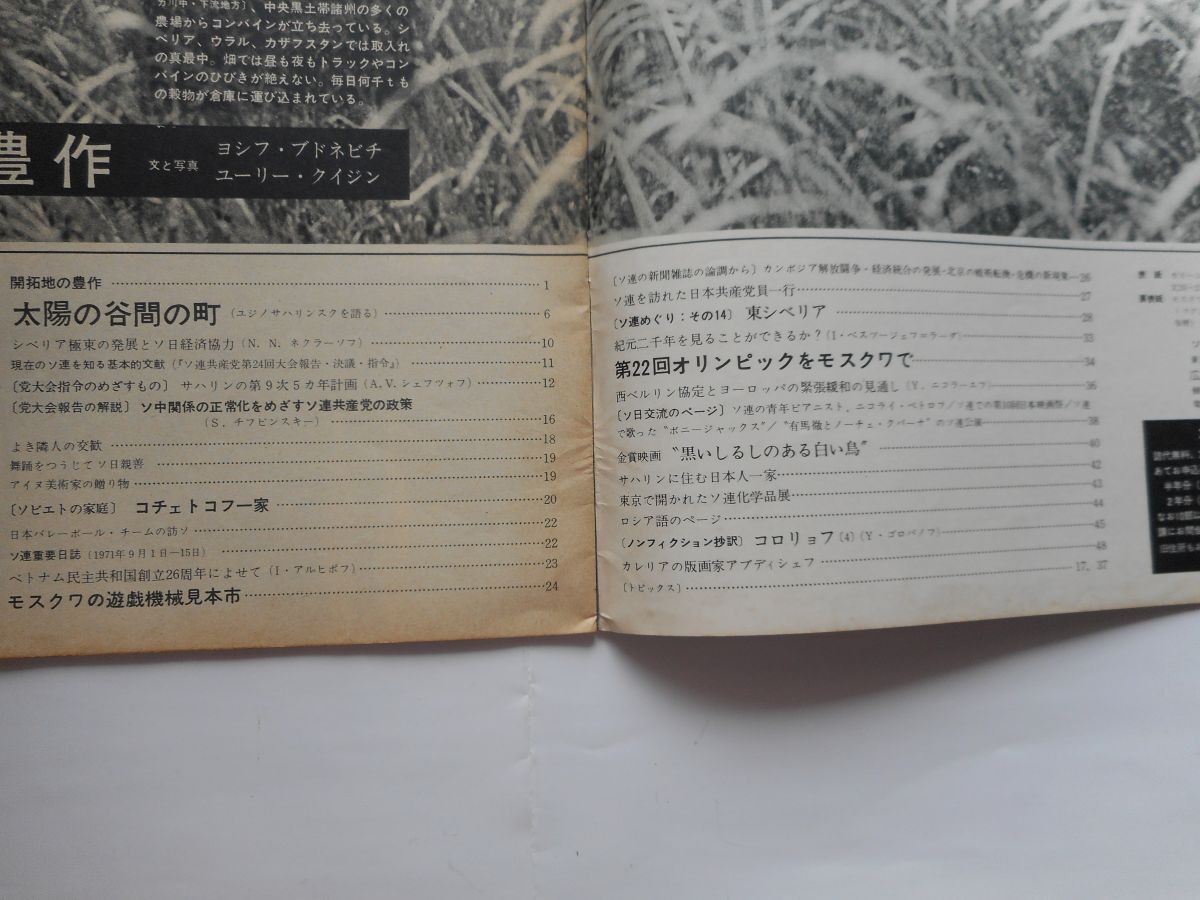 ガ川中・下流地方〕、中央黒土帯諸州の多くの
農場からコンバインが立ち去っている。シ
ベリア、ウラル、カザフスタンでは取入れ
の真最中。畑では昼も夜もトラックやコン
バインのひびきが絶えない。毎日何千tも
の穀物が倉庫に運び込まれている。
豊作
文と写真
ヨシフ・ブドネビチ
ユーリー・クイジン
開拓地の豊作 1
太陽の谷間の町（ユジノサハリンスクを語る） 6
シベリア極東の発展とソ日経済協力（N. N. ネクラーソフ） 10
現在のソ連を知る基本的文献（『ソ連共産党第24回大会報告・決議・指令』） 11
〔党大会指令のめざすもの〕サハリンの第9次5カ年計画（A. V. シェフツォフ） 12
〔党大会報告の解説〕ソ中関係の正常化をめざすソ連共産党の政策
（S. チフビンスキー） 16
よき隣人の交歓 18
舞踊をつうじてソ日親善 19
アイヌ美術家の贈り物 19
〔ソビエトの家庭〕コチェトコフ一家 20
日本バレーボール・チームの訪ソ 22
ソ連重要日誌（1971年9月1日―15日） 22
ベトナム民主共和国創立26周年によせて（I・アルヒポフ） 23
モスクワの遊戯機械見本市 24
〔ソ連の新聞雑誌の論調から〕カンボジア解放闘争・経済統合の発展・北京の戦術転換・危機の新現象 26
ソ連を訪れた日本共産党員一行 27
〔ソ連めぐり：その14〕東シベリア 28
紀元二千年を見ることができるか？（I・ベスツージェフ＝ラーダ） 33
第22回オリンピックをモスクワで 34
西ベルリン協定とヨーロッパの緊張緩和の見通し（Y. ニコラーエフ） 36
〔ソ日交流のページ〕ソ連の青年ピアニスト、ニコライ・ペトロフ／ソ連での第10回日本映画祭／ソ連
で歌った“ボニージャックス”／“有馬徹とノーチェ・クバーナ”のソ連公演 38
金賞映画 “黒いしるしのある白い鳥” 40
サハリンに住む日本人一家 42
東京で開かれたソ連化学品展 43
ロシア語のページ 44
〔ノンフィクション抄訳〕コロリョフ〔4〕（Y・ゴロバノフ） 45
カレリアの版画家アブディシェフ 48
〔トピックス〕 17, 37
表 紙
裏表紙
読代無料、
あてお申込
半年分（
2年分
なお治